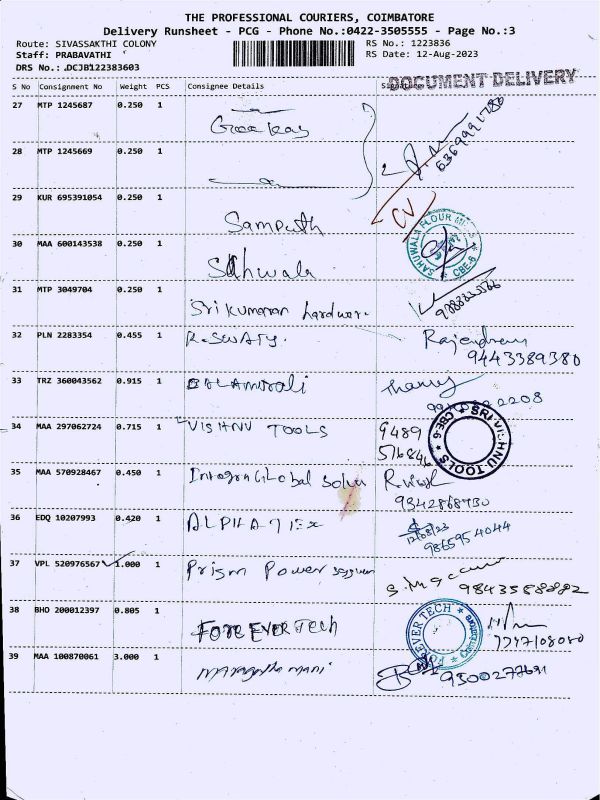 THE PROFESSIONAL COURIERS, COIMBATORE
Delivery Runsheet - PCG - Phone No.:0422-3505555 - Page No.:3
Route: SIVASSAKTHI COLONY RS No.: 1223836
Staff: PRABAVATHI RS Date: 12-Aug-2023
DRS No.: DCJB122383603
DOCUMENT DELIVERY
S No Consignment No Weight PCS Consignee Details Signature
27 MTP 1245687 0.250 1
28 MTP 1245669 0.250 1
29 KUR 695391054 0.250 1 Sampath CV
30 MAA 600143538 0.250 1 Sahwala SAHUWALA FLOUR MILLS CBE-6
31 MTP 3049704 0.250 1 Sri kumaran hardware
32 PLN 2283354 0.455 1 R. SWATY. Rajendran
9443389380
33 TRZ 360043562 0.915 1 BALAMURALI
34 MAA 297062724 0.715 1 VISHNU TOOLS 9489
516846 SRI VISHNU TOOLS CBE-6
35 MAA 570928467 0.450 1 Integra Global
9342868930
36 EDQ 10207993 0.420 1 ALPHA TEX 12/08/23
9865954044
37 VPL 520976567 1.000 1 Prism Power
9843558882
38 BHO 200012397 0.805 1 FOREVER Tech FOREVER TECH
39 MAA 100870061 3.000 1